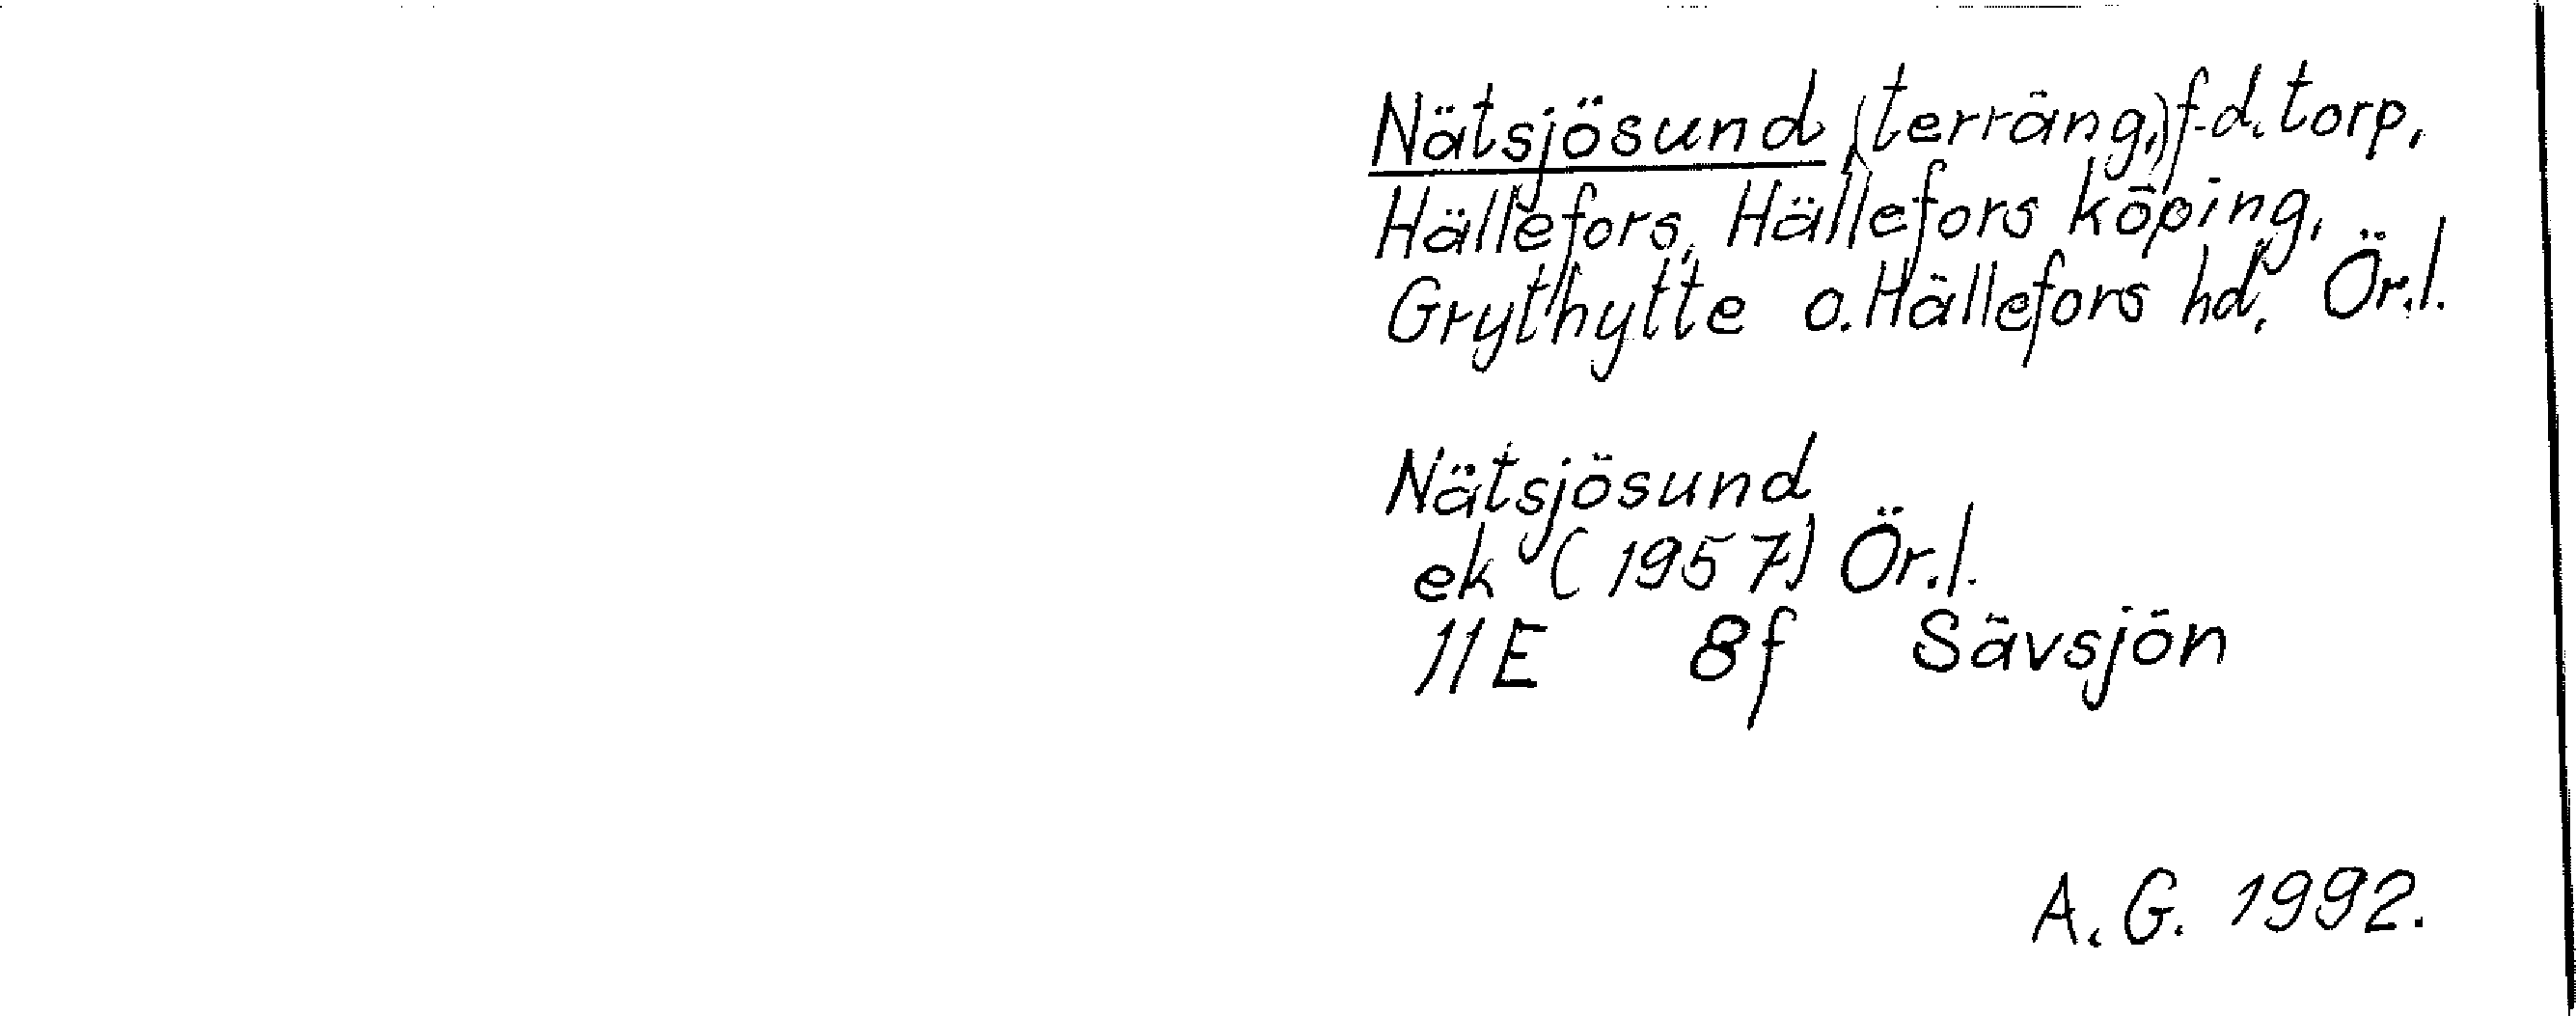 Nätsjösund (terräng,) f.d. torp,
Hällefors, Hällefors köping,
Grythytte o. Hällefors hd, Ör.l.
Nätsjösund
ek (1957) Ör.l.
11E 8f Sävsjön
A.G. 1992.